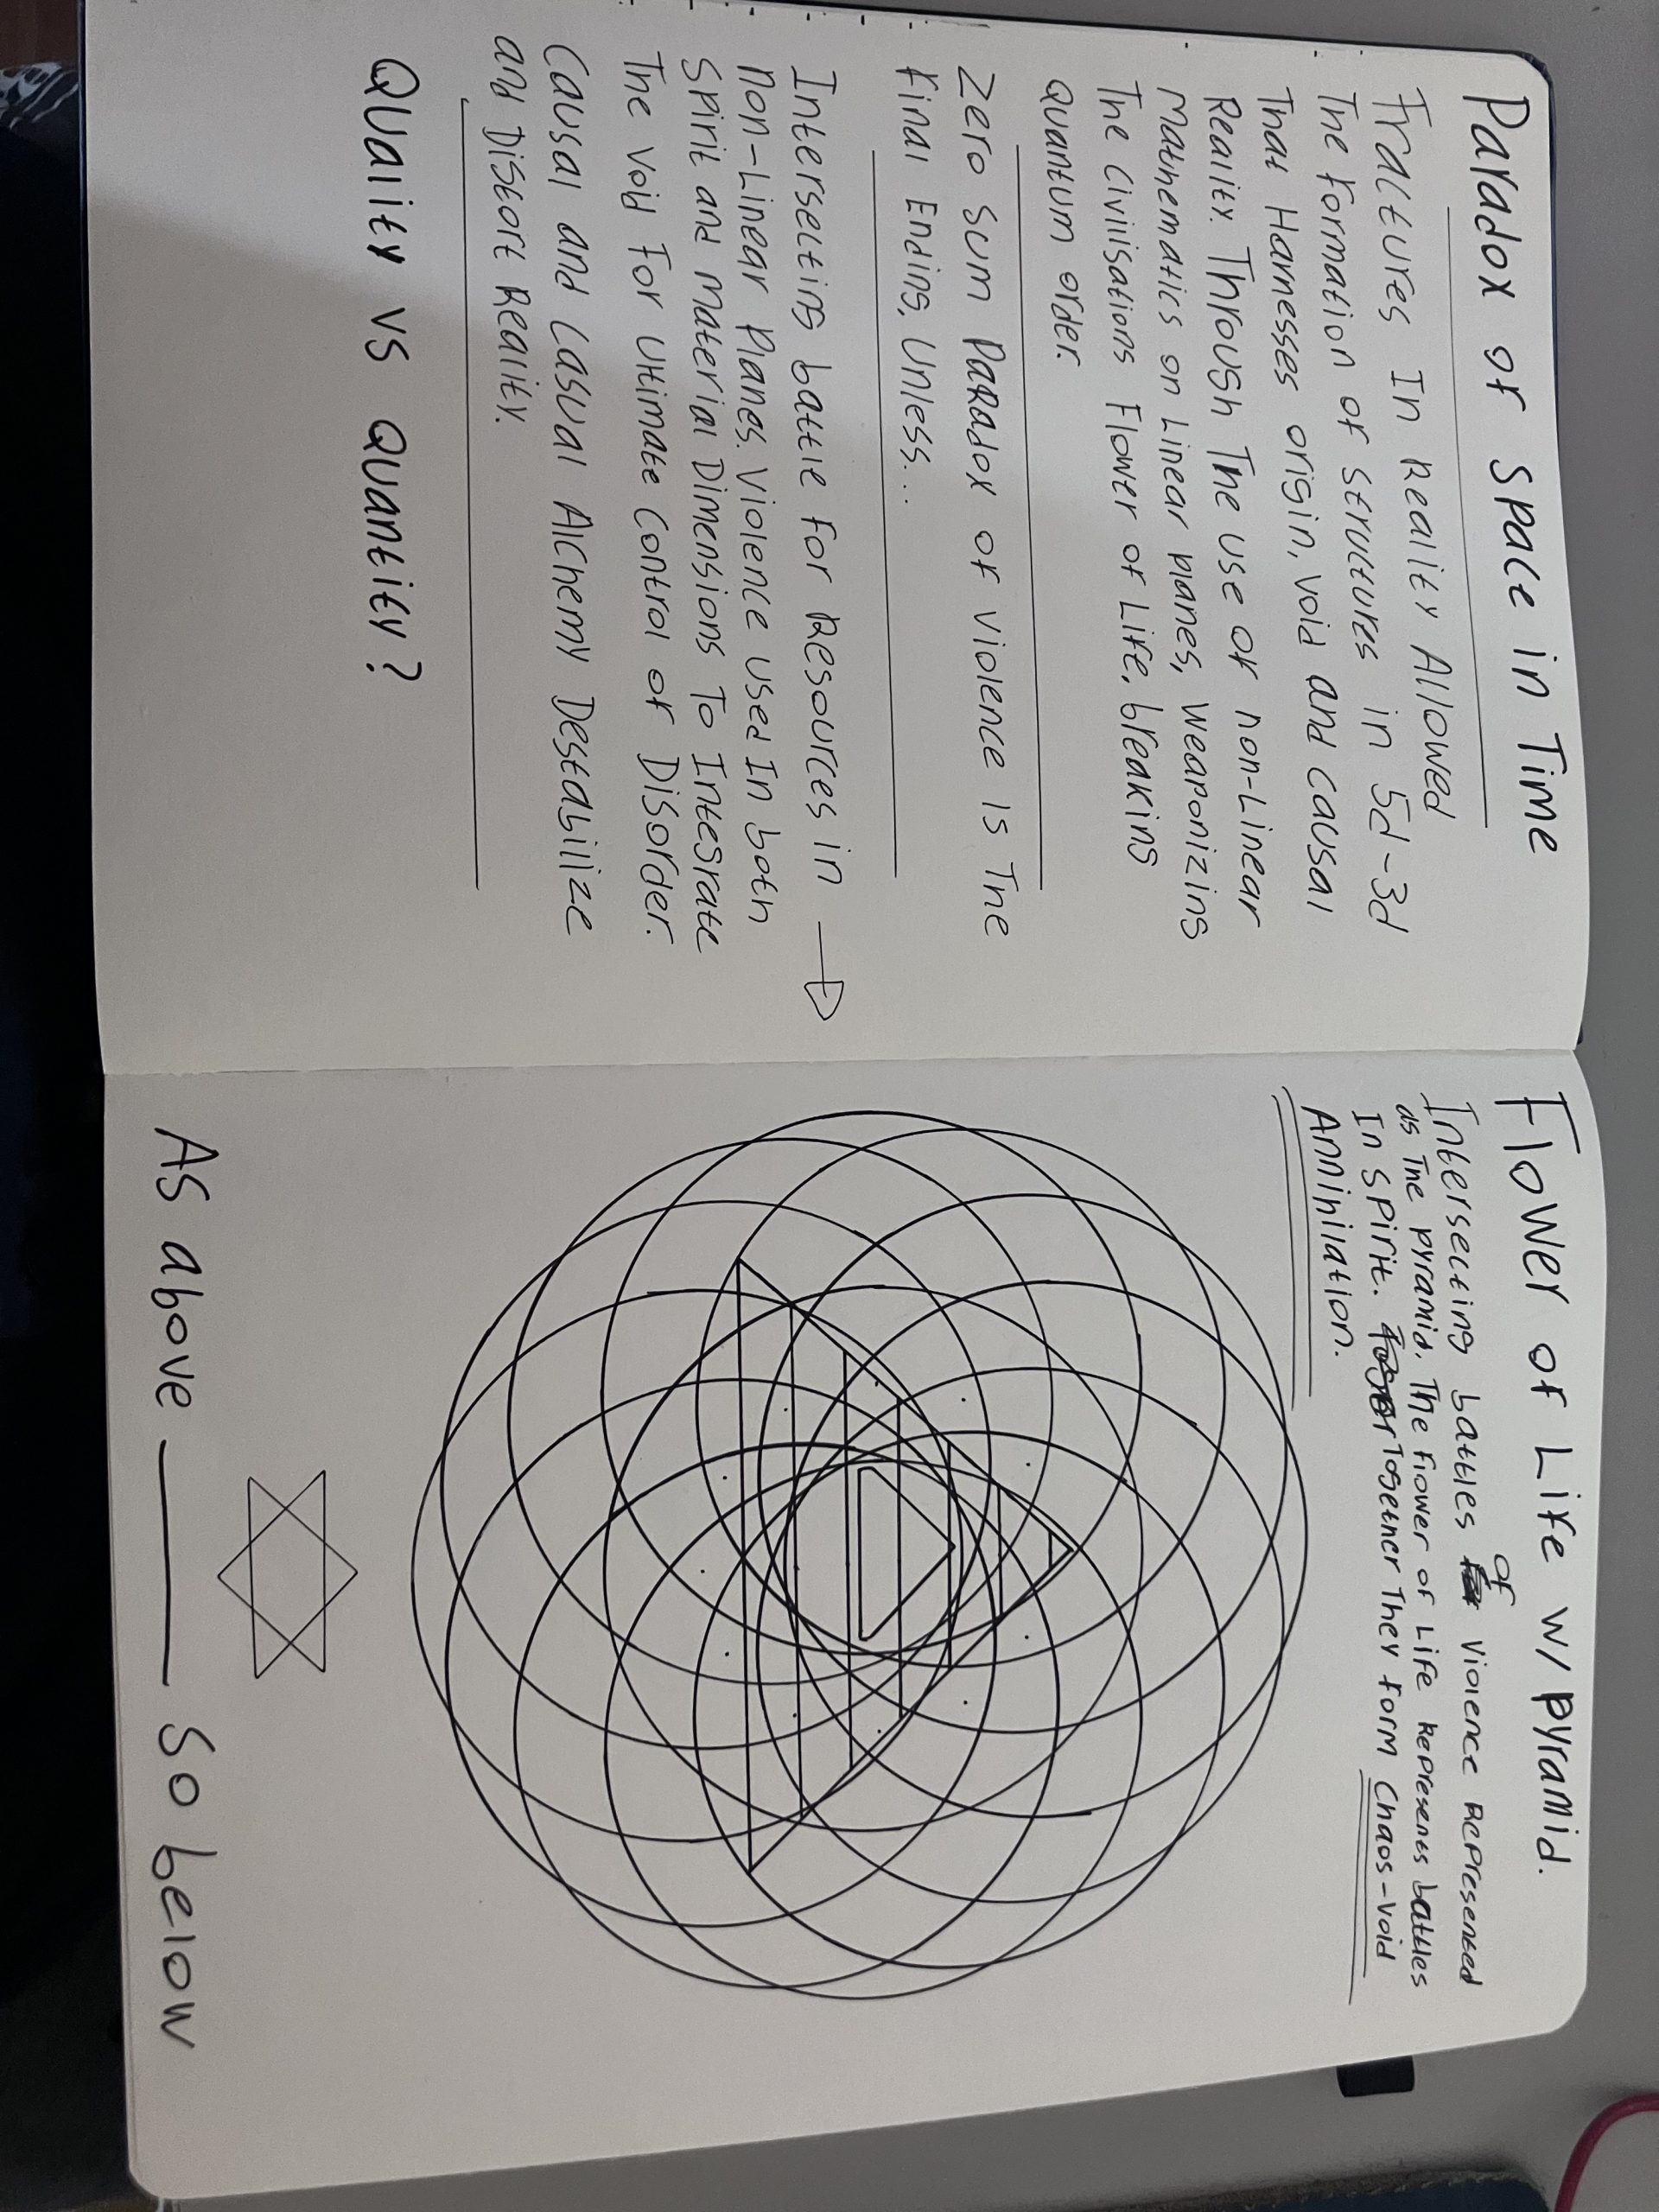 Paradox of Space in Time
Fractures In Reality Allowed
The formation of structures in 5d-3d
That Harnesses origin, void and causal
Reality. Through The use of non-Linear
Mathematics on Linear planes, weaponizing
The civilisations Flower of Life, breaking
Quantum order.
Zero Sum Paradox of violence is The
Final Ending, Unless...
Intersecting battle for Resources in
Non-Linear Planes. Violence used In both
Spirit and Material Dimensions To Integrate
The Void For Ultimate Control of Disorder.
Causal and Casual Alchemy Destabilize
and Distort Reality.
Quality vs Quantity?
Flower of Life w/pyramid.
Intersecting battles of violence Represented
as The pyramid. The flower of Life Represents battles
In Spirit. Together They form Chaos-Void
Annihilation.
As above So below